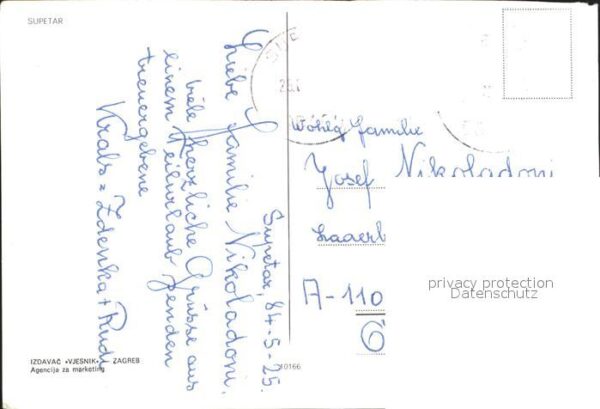 SUPETAR
Supetar, 84-5-25.
Liebe Familie Nikoladoni,
viele herzliche Grüsse aus
einem Teilurlaub senden
treuergebene
Krabs = Zdenka + Rudi
Wohlg Familie
Josef Nikoladoni
Laaerb
A-110
6
privacy protection
Datenschutz
IZDAVAČ »VJESNIK« ZAGREB
Agencija za marketing
10166